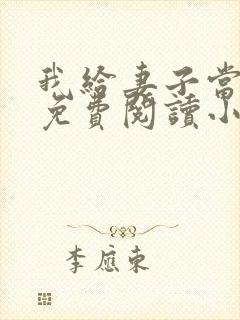 我给妻子當
免費閱讀小
李應東